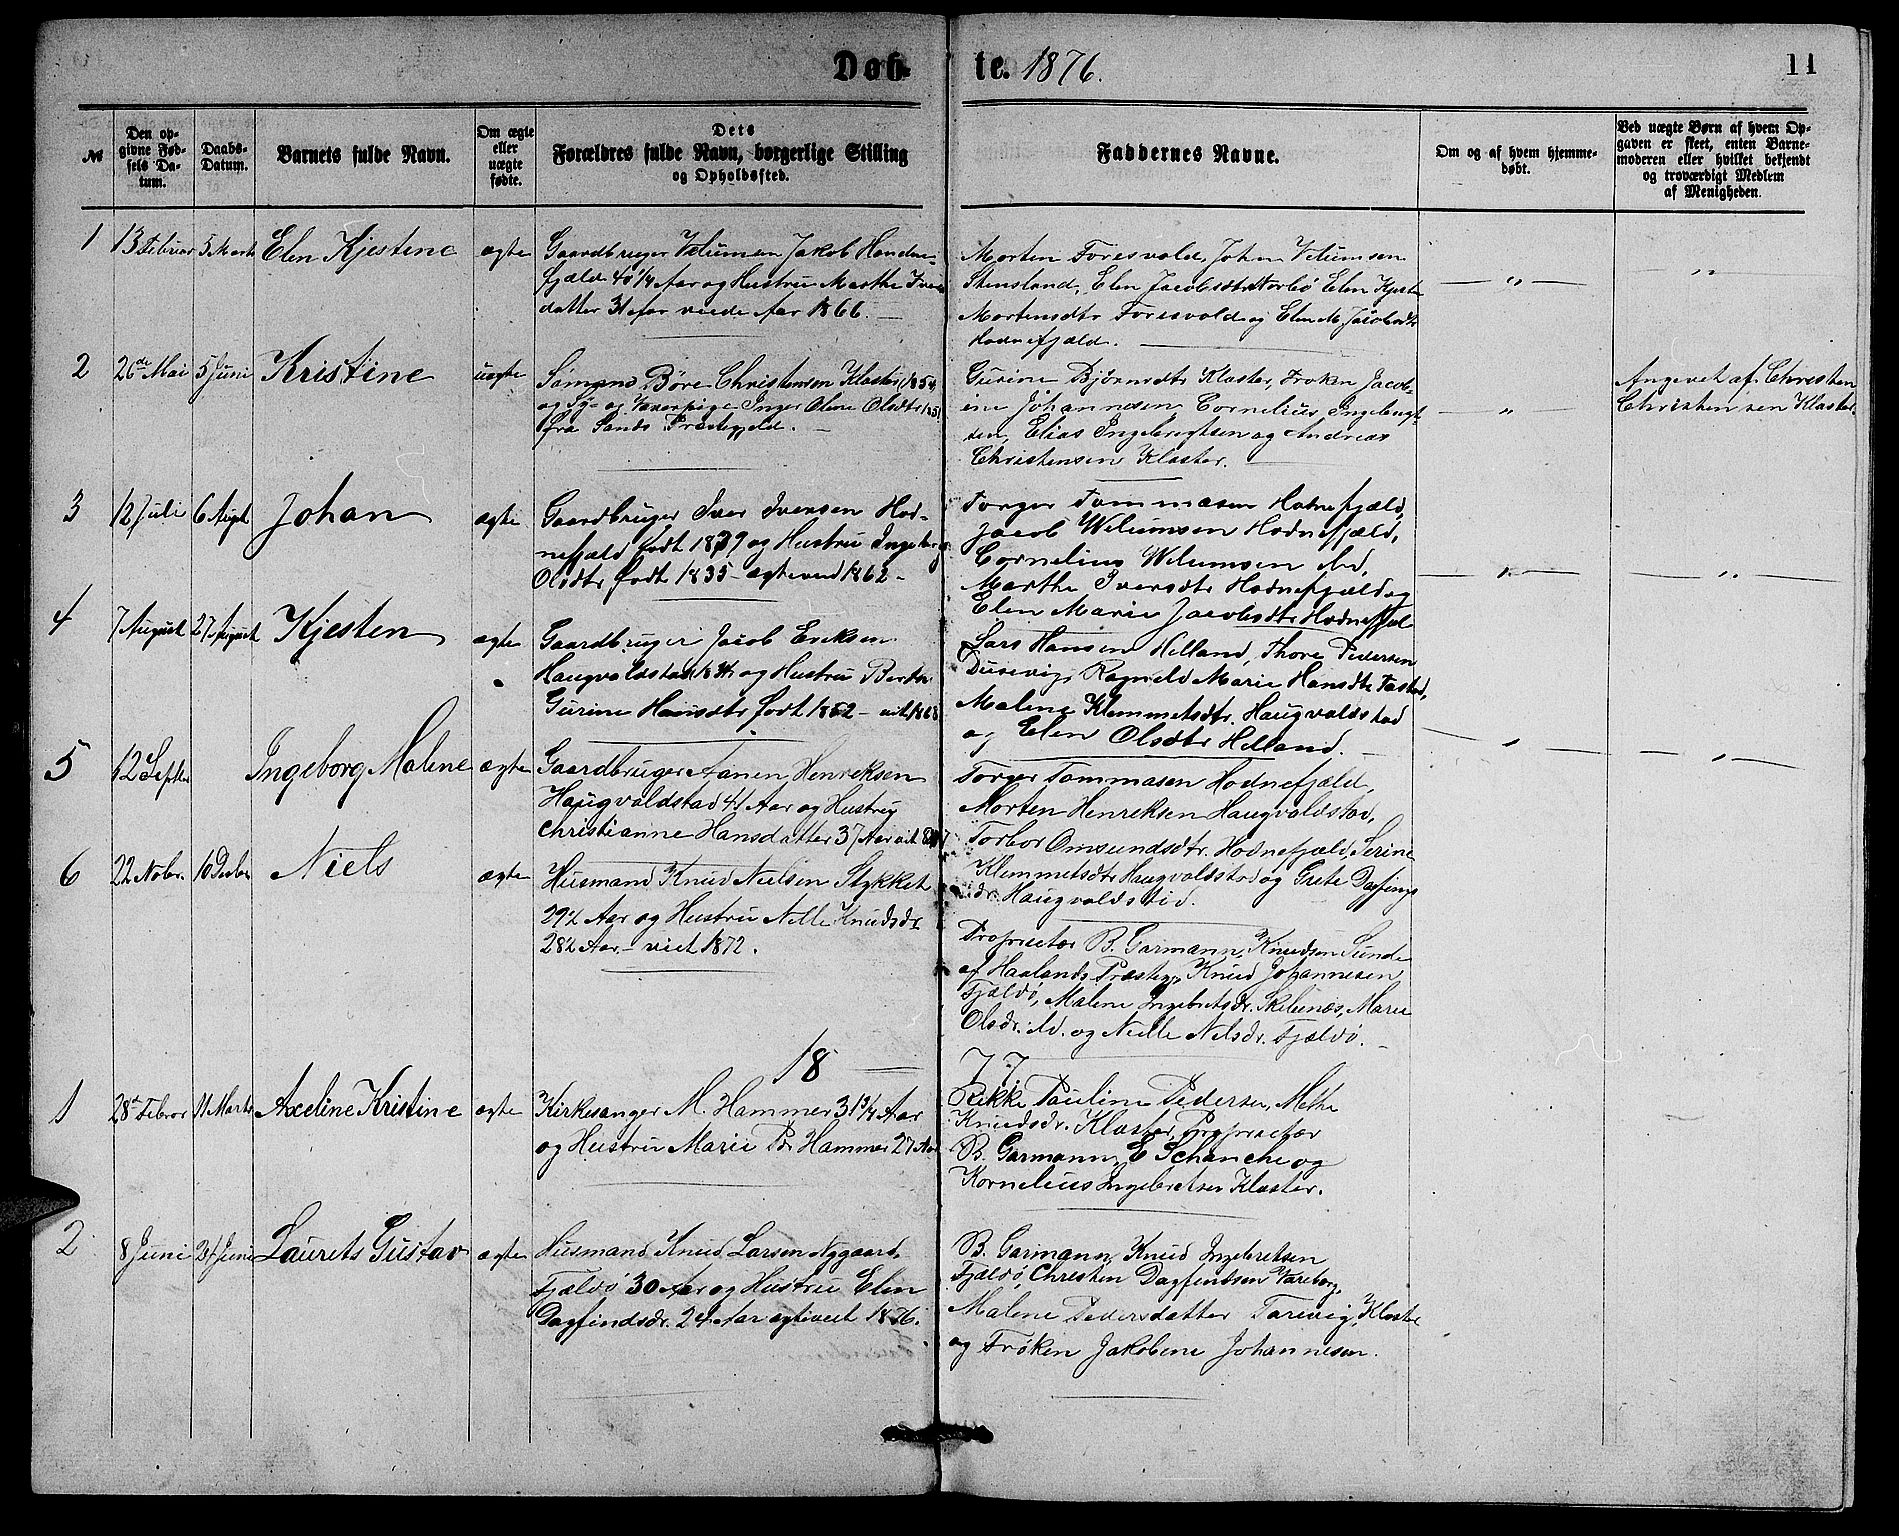 Døb-
te. 1876.
11
№
Den op-
givne Fød-
sels Da-
tum.
Daabs-
Datum.
Barnets fulde Navn.
Om ægte
eller
uægte
fødte.
Dets
Forældres fulde Navn, borgerlige Stilling
og Opholdssted.
Faddernes Navne.
Om og af hvem hjemme-
døbt.
Ved uægte Børn af hvem Op-
gaven er skeet, enten Barne-
moderen eller hvilket bekjendt
og troværdigt Medlem
af Menigheden.
1
13 Februar
5 Marts
Elen Kjestene
ægte
Gaardbruger Velumsen Jakob Hondne-
fjæld 40 1/4 Aar og Hustru Marthe Ivers
datter 31 Aar viede Aar 1866. —
Morten Foresvold, John Velumsen
Stensland, Elen Jacobsdtr Norbø Elen Kjeste
Mortensdtr Foresvold og Elen M. Jacobsdtr
Hodnefjæld.
— " —
"
2
26de Mai
5 Juni
Kristine
uægte
Sømand Børe Christensen Kloster 1854
og Sy- og Væverpige Inger Olene Olsdtr 185
fra Sands Præstegjeld. —
Gurine Bjørnsdtr Kloster, Frøken Jacob-
ine Johannesen Cornelius Ingebregt-
sen, Elias Ingebregtsen og Andreas
Christensen Kloster.
— " —
Angevet af Christen
Christensen Kloster.
3
12 Juli
6 Augst
Johan
ægte
Gaardbruger Iver Iversen Hod-
nefjæld født 1839 og Hustru Ingeborg
Olsdtr født 1835 – ægteved 1862 –
Torger Tommasen Hodnefjæld,
Jacob Welumsen Hodnefjæld,
Cornelius Welumsen ibd,
Marthe Iversdtr Hodnefjæld og
Elen Marie Jacobsdtr Hodnefjæl
— " —
— " —
4
7 August
27 August
Kjesten
ægte
Gaardbruger Jacob Eriksen
Haugvaldstad 1834 og Hustru Berthe
Gurine Hansdtr født 1842 – viet 1868
Lars Hansen Helland, Thore Pedersen
Dusevig, Ragnild Marie Hansdtr Fastad,
Malene Klemmetsdtr. Haugvaldstad
og Elen Olsdtr Helland. —
— " —
— " —
5
12 Septer
Ingeborg Malene
ægte
Gaardbruger Aanen Henreksen
Haugvaldstad 41 Aar og Hustru
Christianne Hansdatter 37 Aar viet
Torger Tommasen Hodnefjæld,
Morten Henreksen Haugvaldstad,
Torbor Omsundsdtr. Hodnefjæld, Serine
Klemmetsdtr Haugvaldstad og Grete Dagfings
dr. Haugvaldstad.
6
22 Nobr.
10 Decbr
Niels
ægte
Husmand Knud Nielsen Stykket
29½ Aar og Hustru Nille Knudsdr
28½ Aar – viet 1872.
Proprietær B. Garmann, Knudsen Sunde
af Haalands Præsteg. Knud Johannesen
Fjældø, Malene Ingebretsdr. Skelenæs, Marie
Olsdr. ibd. og Nielle Nelsdr. Fjældø. –
18 — 77.
1
28de Febror
11 Marts
Axeline Kristine
ægte
Kirkesanger M. Hammer 31 3/4 Aar
og Hustru Marie Hammer 27 Aar
Rikke Pauline Pedersen, Methe
Knudsdr. Kloster, Proprietær
B. Garmann, E Schanche og
Kornelius Ingebretsen Kloster.
2
8 Juni
24 Juni
Laurets Gustav
ægte
Husmand Knud Larsen Nygaard,
Fjældø 30 Aar og Hustru Elen
Dagfindsdr. 24 Aar ægteviet 1876.
B. Garmann, Knud Ingebretsen
Fjældø, Christen Dagfindsen Vareberg,
Malene Pedersdatter Tarevig, Kloster
og Frøken Jakobene Johannesen.